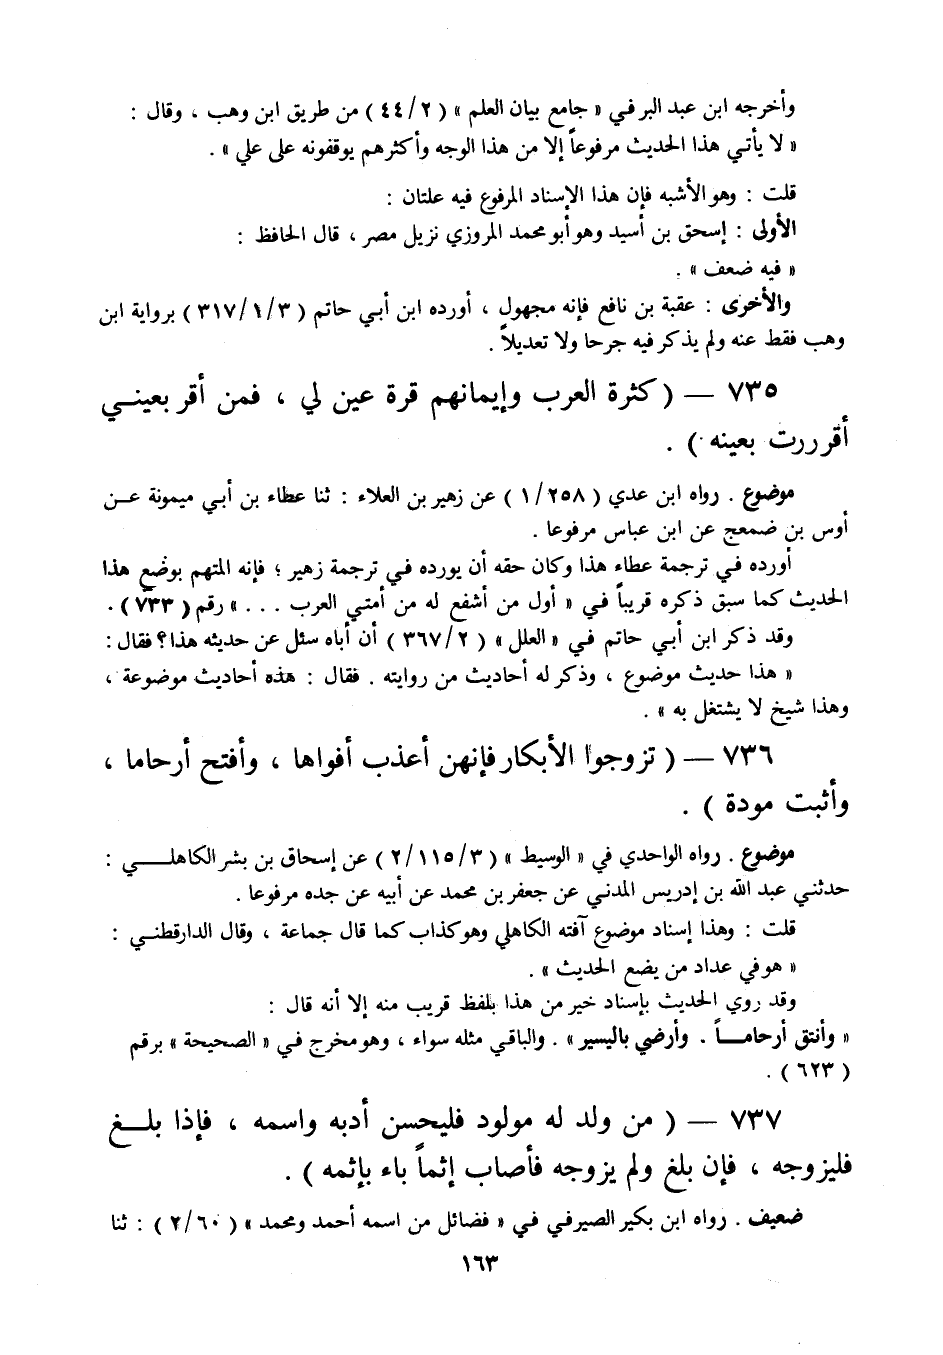 وأخرجه ابن عبد البر في « جامع بيان العلم » ( ٢/ ٤٤ ) من طريق ابن وهب ، وقال :
« لا يأتي هذا الحديث مرفوعاً إلا من هذا الوجه وأكثرهم يوقفونه على علي » .
قلت : وهو الأشبه فإن هذا الإسناد المرفوع فيه علتان :
الأولى : إسحق بن أسيد وهو أبو محمد المروزي نزيل مصر ، قال الحافظ :
« فيه ضعف » .
والأخرى : عقبة بن نافع فإنه مجهول ، أورده ابن أبي حاتم ( ٣/ ١/ ٣١٧ ) برواية ابن
وهب فقط عنه ولم يذكر فيه جرحا ولا تعديلاً .
٧٣٥ — ( كثرة العرب وإيمانهم قرة عين لي ، فمن أقر بعيني
أقررت بعينه ) .
موضوع . رواه ابن عدي ( ٢٥٨/ ١ ) عن زهير بن العلاء : ثنا عطاء بن أبي ميمونة عن
أوس بن ضمعج عن ابن عباس مرفوعا .
أورده في ترجمة عطاء هذا وكان حقه أن يورده في ترجمة زهير ؛ فإنه المتهم بوضع هذا
الحديث كما سبق ذكره قريباً في « أول من أشفع له من أمتي العرب . . . » رقم ( ٧٣٣ ) .
وقد ذكر ابن أبي حاتم في « العلل » ( ٢/ ٣٦٧ ) أن أباه سئل عن حديثه هذا ؟ فقال :
« هذا حديث موضوع ، وذكر له أحاديث من روايته . فقال : هذه أحاديث موضوعة ،
وهذا شيخ لا يشتغل به » .
٧٣٦ — ( تزوجوا الأبكار فإنهن أعذب أفواها ، وأفتح أرحاما ،
وأثبت مودة ) .
موضوع . رواه الواحدي في « الوسيط » ( ٣/ ١١٥/ ٢ ) عن إسحاق بن بشر الكاهلي :
حدثني عبد الله بن إدريس المدني عن جعفر بن محمد عن أبيه عن جده مرفوعا .
قلت : وهذا إسناد موضوع آفته الكاهلي وهو كذاب كما قال جماعة ، وقال الدارقطني :
« هو في عداد من يضع الحديث » .
وقد روي الحديث بإسناد خير من هذا بلفظ قريب منه إلا أنه قال :
« وأنتق أرحاماً . وأرضي باليسير » . والباقي مثله سواء ، وهو مخرج في « الصحيحة » برقم
( ٦٢٣ ) .
٧٣٧ — ( من ولد له مولود فليحسن أدبه واسمه ، فإذا بلغ
فليزوجه ، فإن بلغ ولم يزوجه فأصاب إثماً باء بإثمه ) .
ضعيف . رواه ابن بكير الصيرفي في « فضائل من اسمه أحمد ومحمد » ( ٦٠/ ٢ ) : ثنا
١٦٣